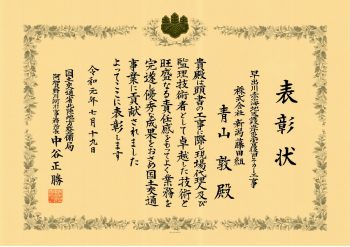 表彰状
早出川赤海地先護岸災害復旧その1工事
株式会社 新潟藤田組
青山 敦 殿
貴殿は頭書の工事に際し現場代理人及び
監理技術者として卓越した技術と
旺盛なる責任感をもってよく業務を
完遂し優秀な成果をおさめ国土交通
事業に貢献されました
よってここに表彰します
令和元年七月十九日
国土交通省北陸地方整備局
阿賀野川河川事務所長
中谷正勝